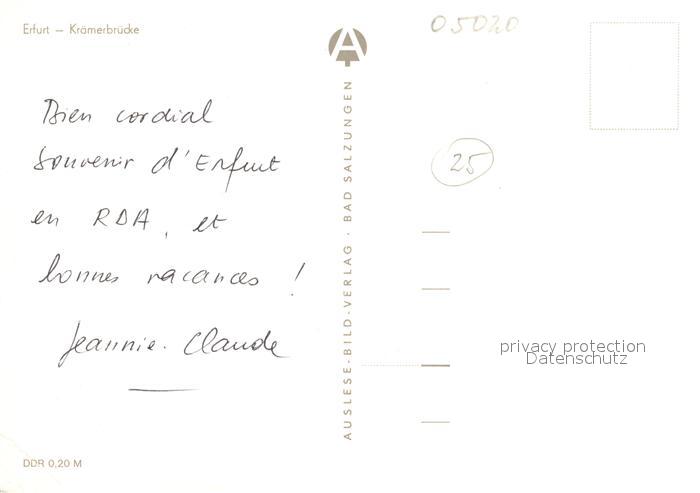 Erfurt – Krämerbrücke
05020
Bien cordial
Souvenir d'Erfurt
en RDA, et
bonnes vacances !
Jeannie. Claude
25
AUSLESE-BILD-VERLAG · BAD SALZUNGEN
privacy protection
Datenschutz
DDR 0,20 M